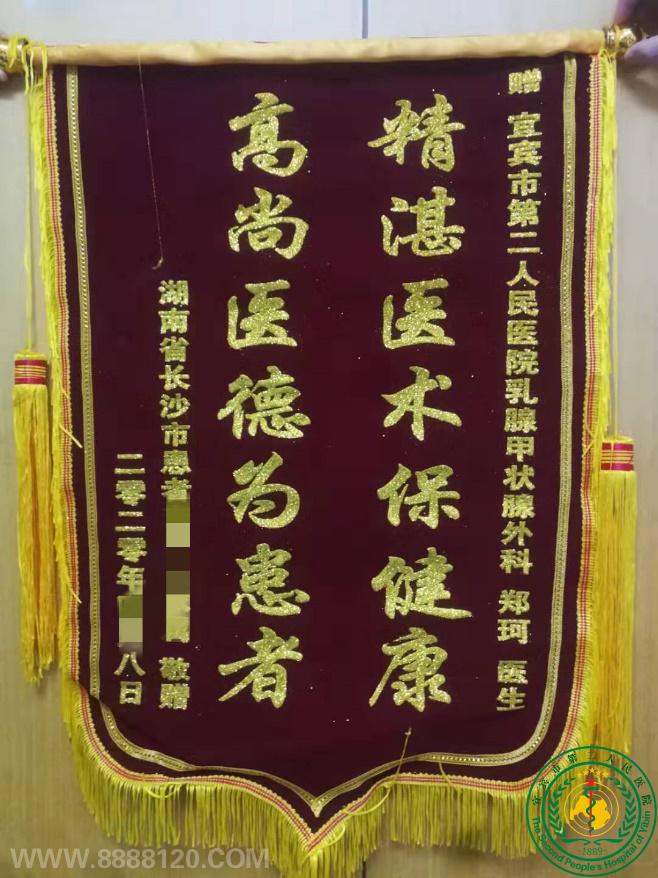 赠 宜宾市第二人民医院乳腺甲状腺外科 郑珂 医生
精湛医术保健康
高尚医德为患者
湖南省长沙市患者 敬赠
二零二零年 八日
宜宾市第二人民医院
The Second People's Hospital of Yibin
-1889-
WWW.8888120.COM